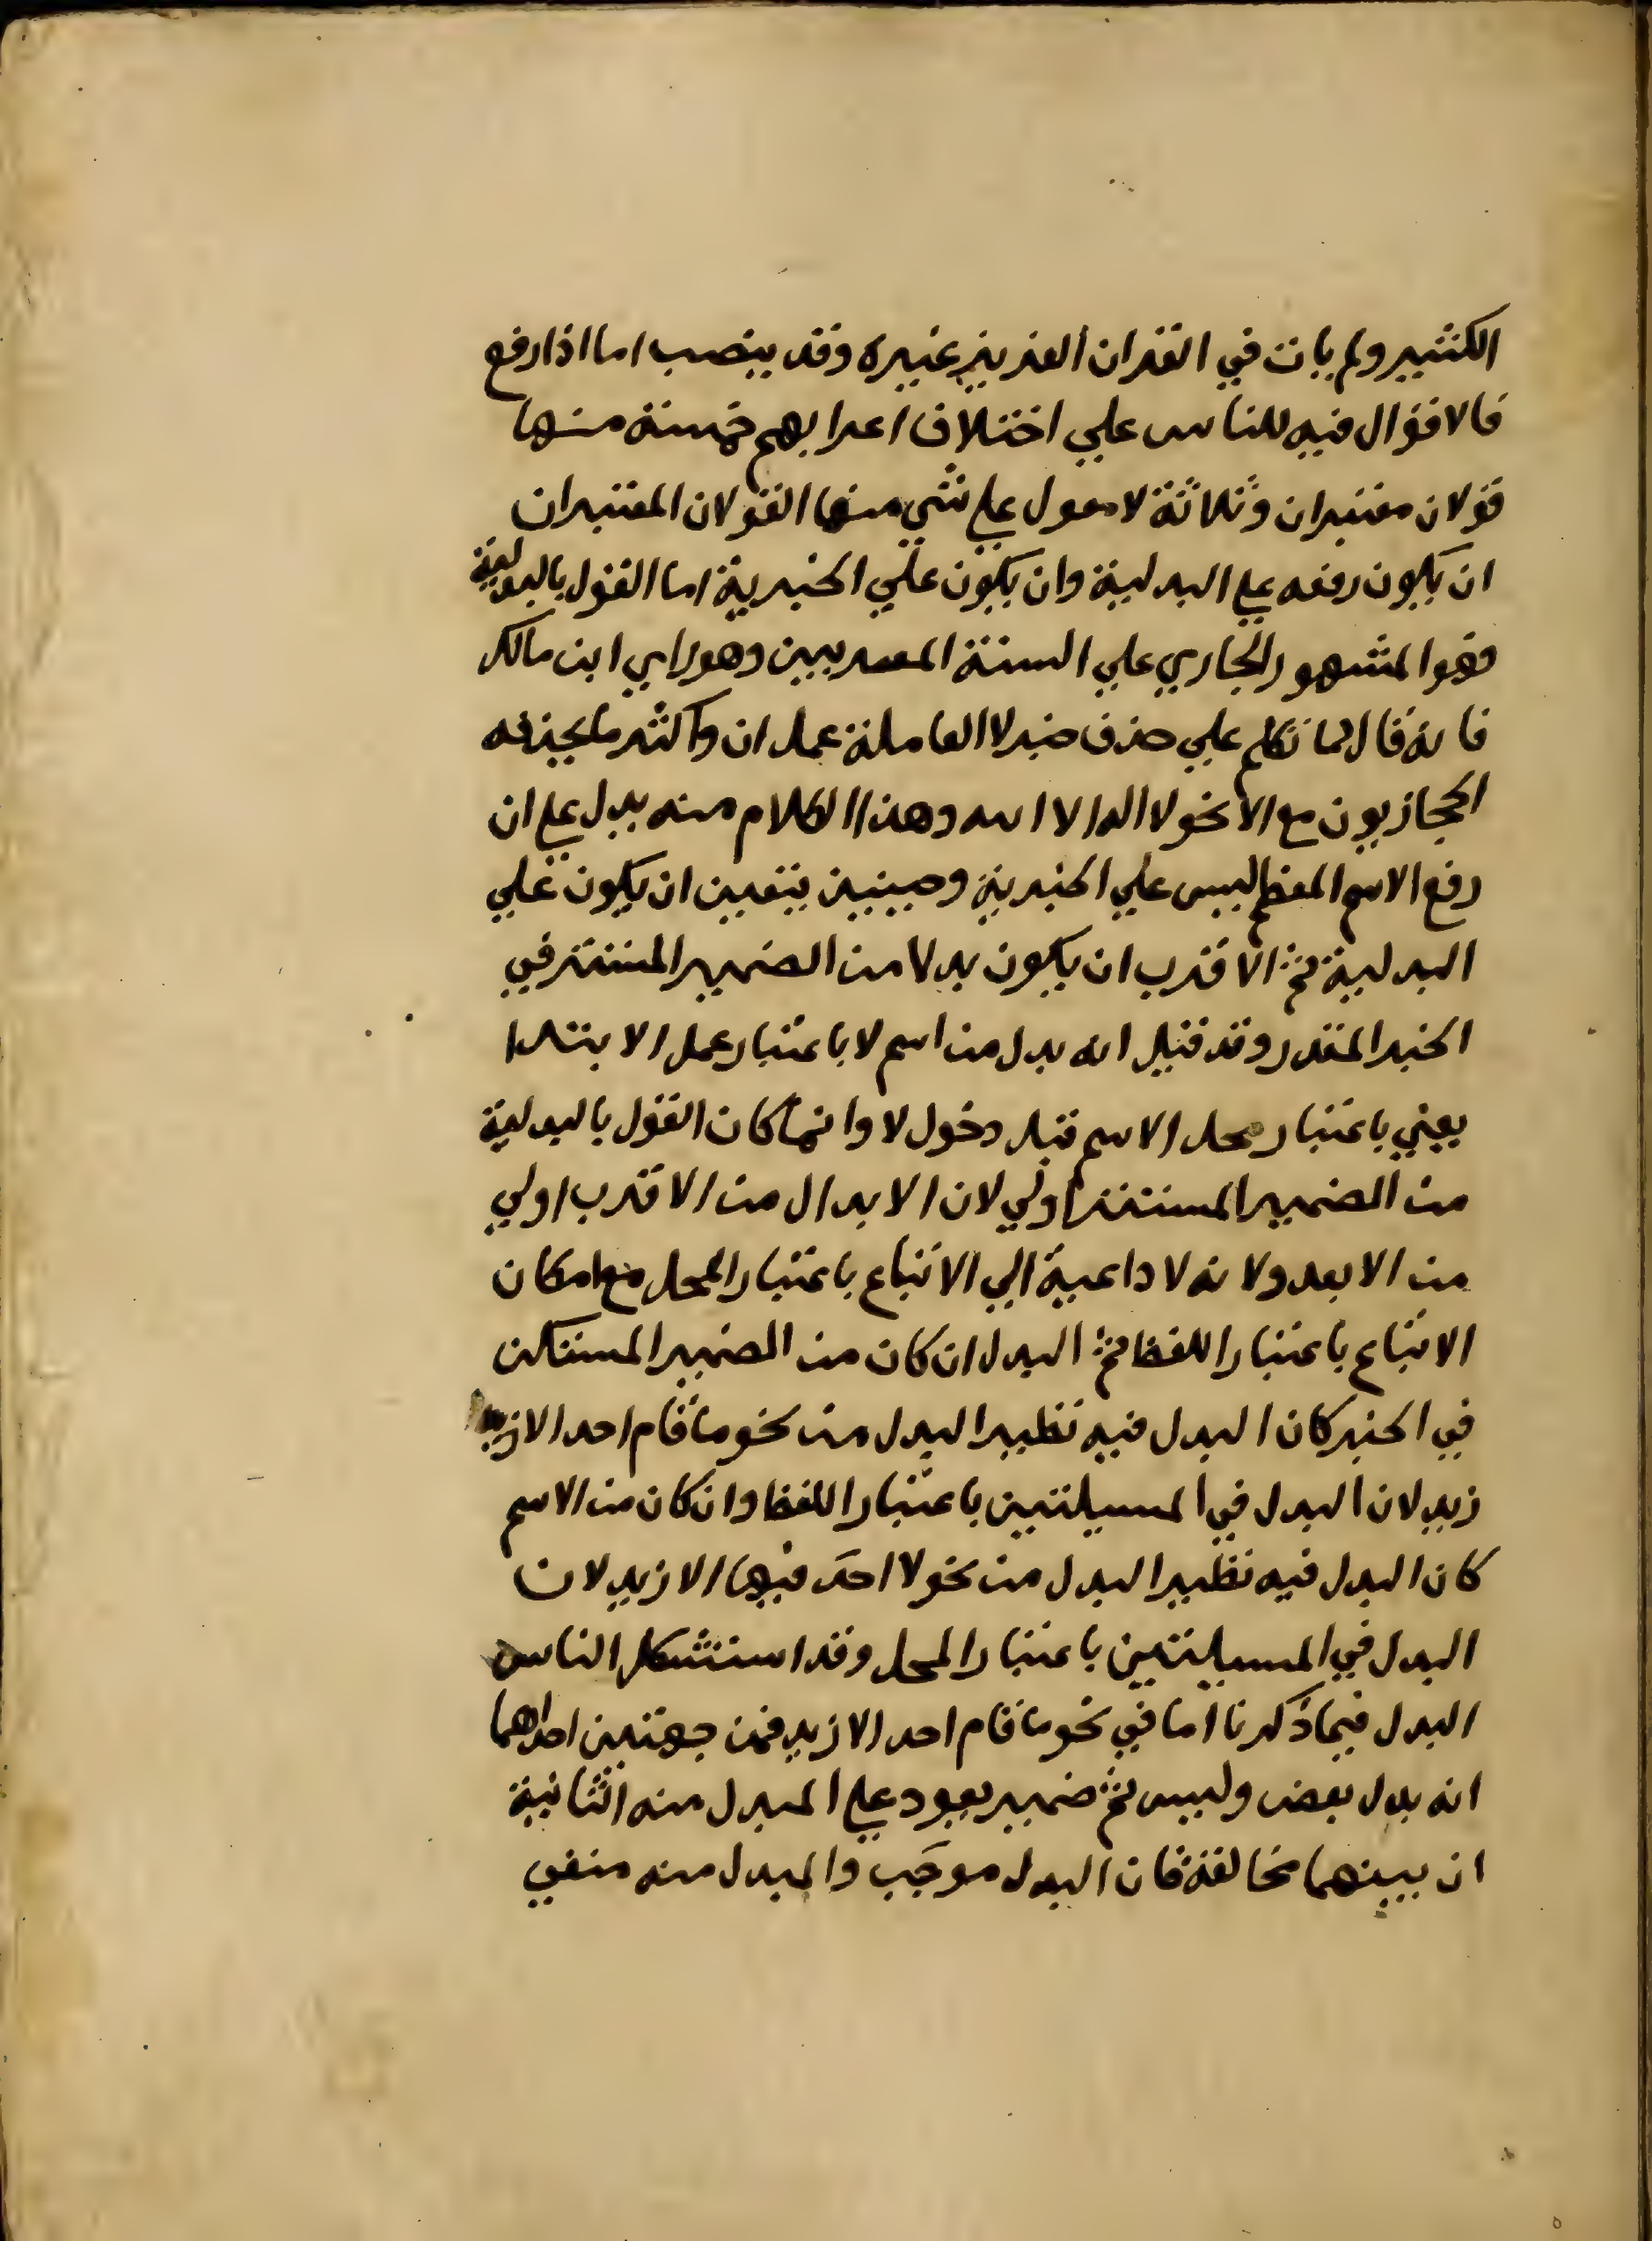 الكثير ولم يات في القران العزيز غيره وقد ينصب اما اذا رفع
فالاقوال فيه للناس علي اختلاف اعرابهم خمسة منها
قولان معتبران وثلاثة لا معول علي شي منها القولان المعتبران
ان يكون رفعه علي البدلية وان يكون علي الخبرية اما القول بالبدلية
فهو المشهور الجاري علي السنة المعربين وهو راي ابن مالك
فانه قال لما تكلم علي حذف خبر لا العاملة عمل ان واكثر ما يحذفه
الحجازيون مع الا نحو لا اله الا الله وهذا الكلام منه يدل علي ان
رفع الاسم المعظم ليس علي الخبرية وحينيذ يتعين ان يكون علي
البدلية ثم الاقرب ان يكون بدلا من الضمير المستتر في
الخبر المقدر وقد قيل انه بدل من اسم لا باعتبار عمل الابتدا
يعني باعتبار محل الاسم قبل دخول لا وانما كان القول بالبدلية
من الضمير المستتر اولي لان الابدال من الاقرب اولي
من الابعد ولانه لا داعية الي الاتباع باعتبار المحل مع امكان
الاتباع باعتبار اللفظ ثم البدل ان كان من الضمير المستكن
في الخبر كان البدل فيه نظير البدل من نحو ما قام احد الا زيد
زيد لان البدل في المسيلتين باعتبار اللفظ وان كان من الاسم
كان البدل فيه نظير البدل من نحو لا احد فيها الا زيد لان
البدل في المسيلتين باعتبار المحل وقد استشكل الناس
البدل فيما ذكرنا اما في نحو ما قام احد الا زيد فمن جهتين احداهما
انه بدل بعض وليس ثم ضمير يعود علي المبدل منه الثانية
ان بينهما مخالفة فان البدل موجب والمبدل منه منفي